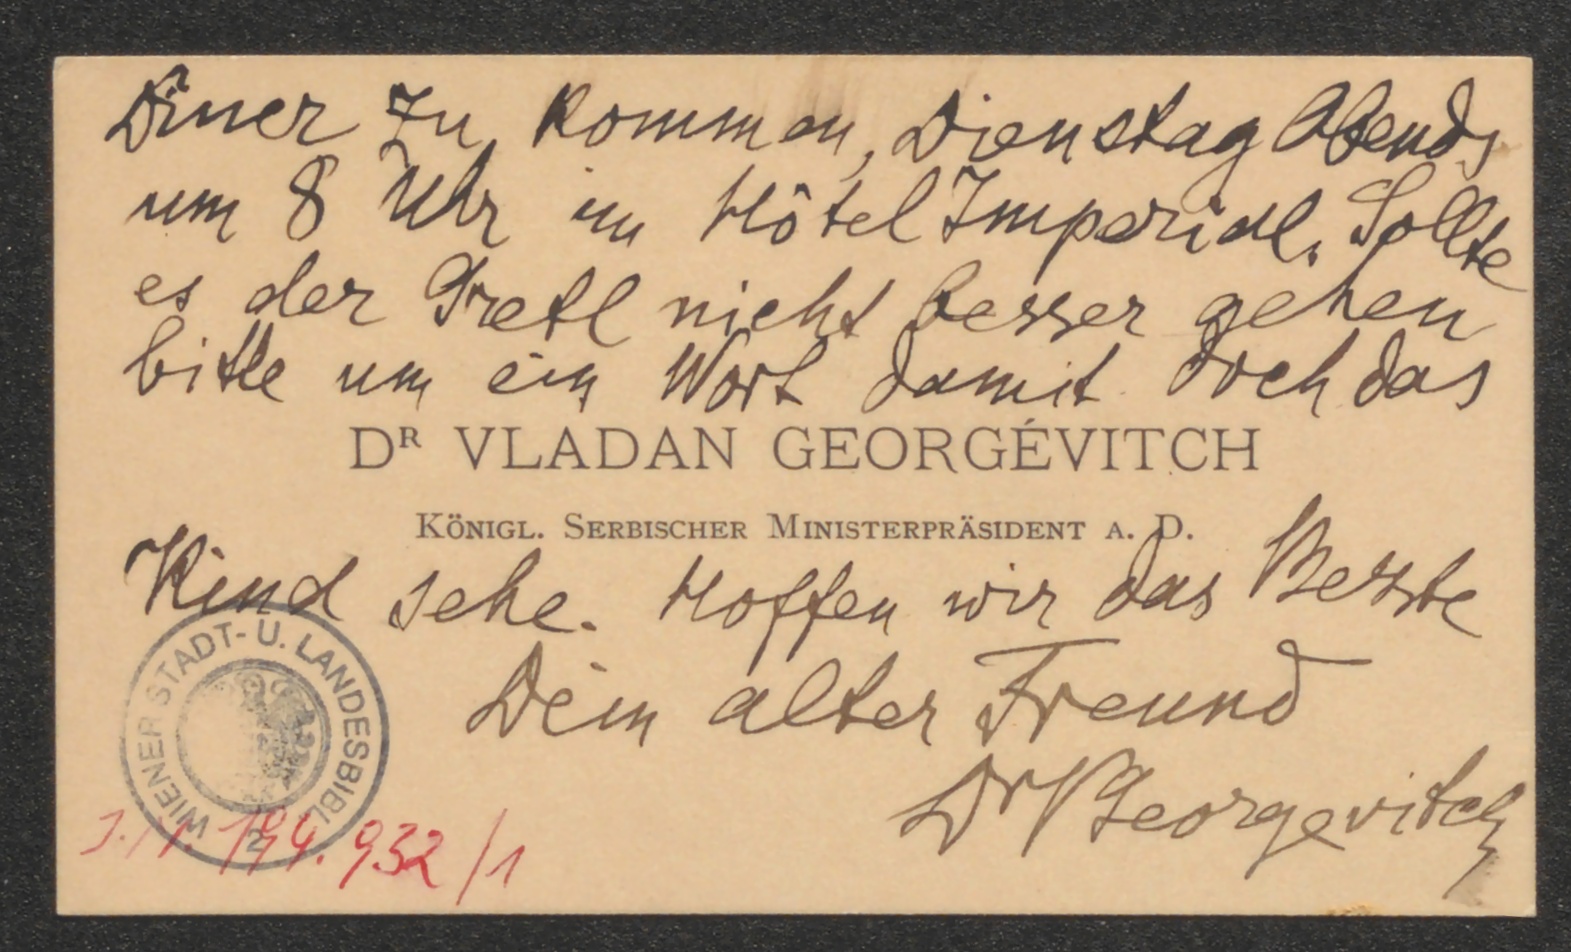 Diner zu kommen, Dienstag Abends
um 8 Uhr im Hôtel Imperial. Sollte
es der Gretl nicht besser gehen
bitte um ein Wort damit doch das
DR VLADAN GEORGÉVITCH
KÖNIGL. SERBISCHER MINISTERPRÄSIDENT A. D.
Kind sehe. Hoffen wir das Beste
Dein alter Freund
Dr VGeorgevitch
WIENER STADT- U. LANDESBIBL.
2
J.N. 194.932/1